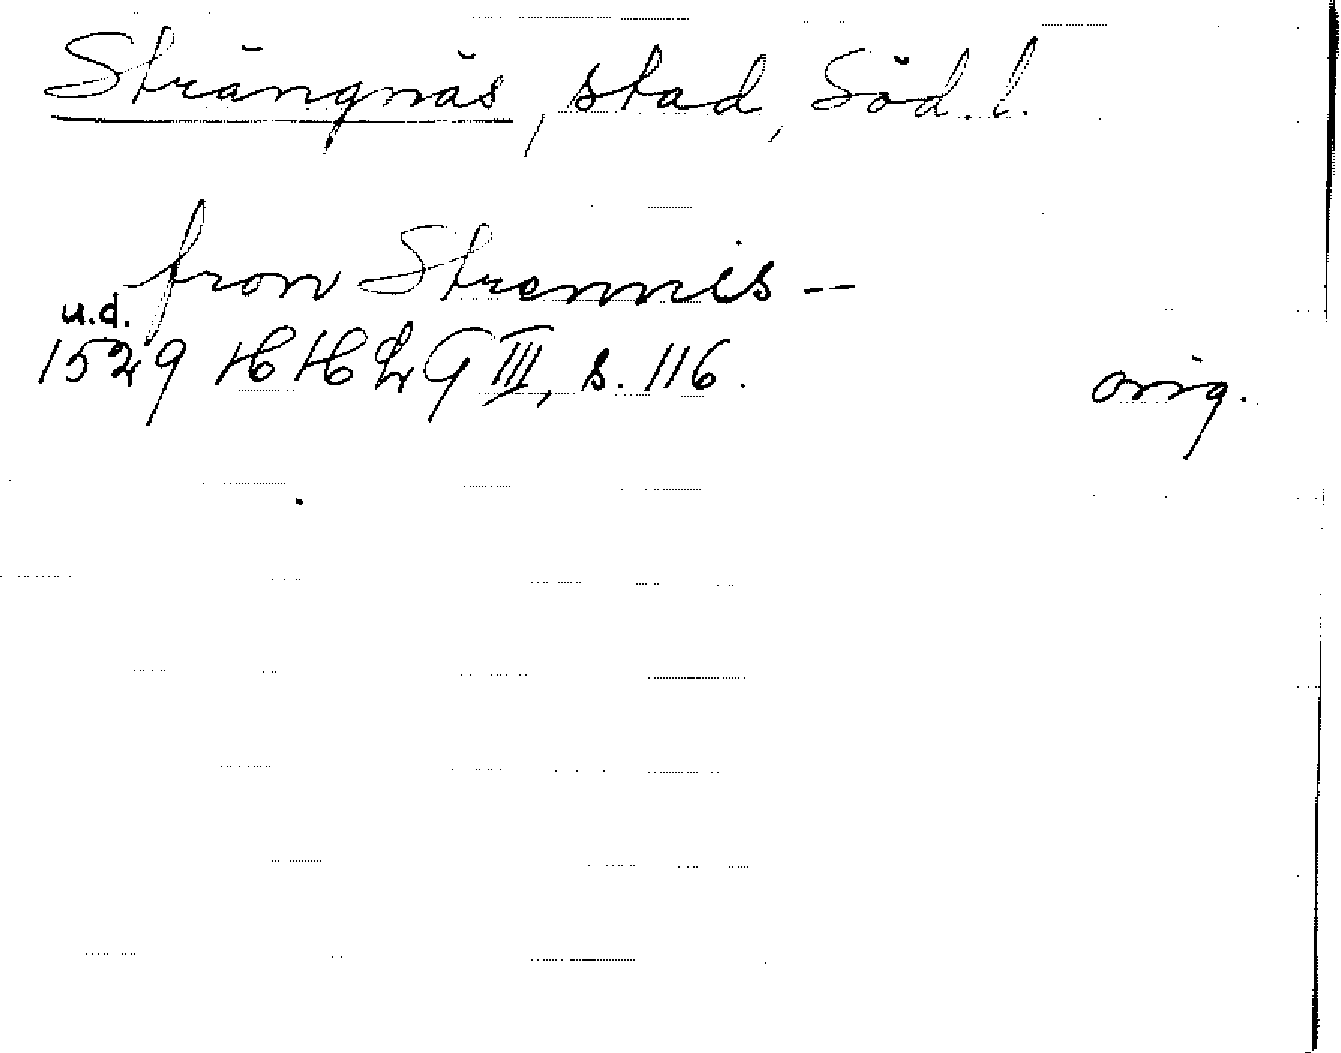 Strängnäs, stad, Söd. l.
fron Strennis --
u.d.
1529 HH Lg III, s. 116. orig.